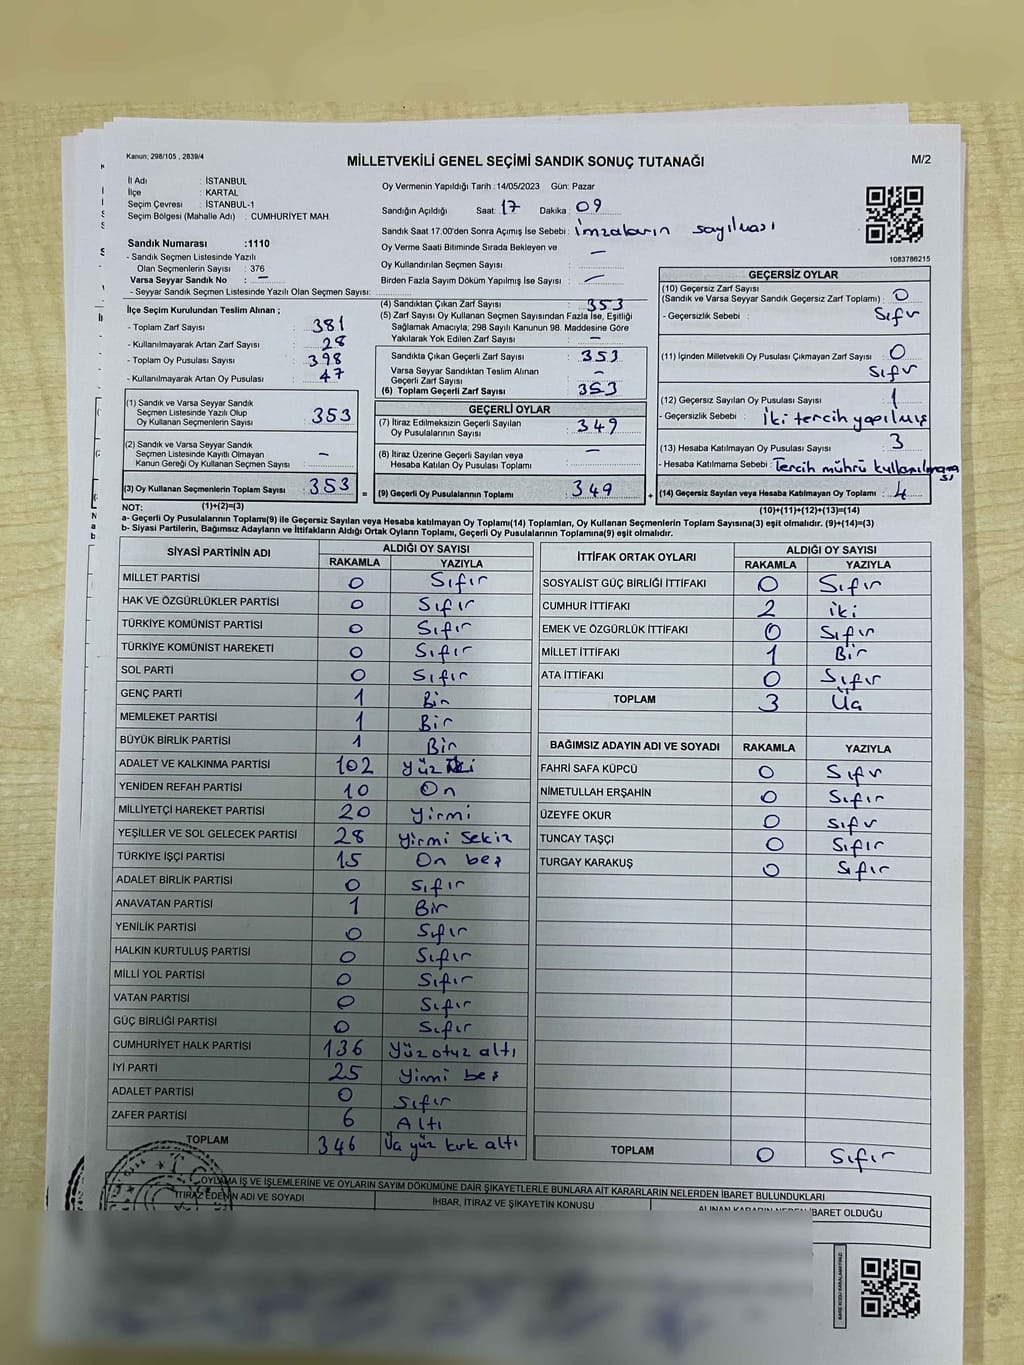 Kanun; 298/105 , 2839/4
MİLLETVEKİLİ GENEL SEÇİMİ SANDIK SONUÇ TUTANAĞI
M/2
İl Adı : İSTANBUL
İlçe : KARTAL
Seçim Çevresi : İSTANBUL-1
Seçim Bölgesi (Mahalle Adı) : CUMHURİYET MAH.
Sandık Numarası :1110
- Sandık Seçmen Listesinde Yazılı
Olan Seçmenlerin Sayısı : 376
Varsa Seyyar Sandık No : –
- Seyyar Sandık Seçmen Listesinde Yazılı Olan Seçmen Sayısı:
Oy Vermenin Yapıldığı Tarih :14/05/2023 Gün: Pazar
Sandığın Açıldığı Saat: 17 Dakika: 09
Sandık Saat 17:00'den Sonra Açımış İse Sebebi : İmzaların sayılması
Oy Verme Saati Bitiminde Sırada Bekleyen ve
Oy Kullandırılan Seçmen Sayısı : –
Birden Fazla Sayım Döküm Yapılmış İse Sayısı : –
1083786215
İlçe Seçim Kurulundan Teslim Alınan ;
- Toplam Zarf Sayısı : 381
- Kullanılmayarak Artan Zarf Sayısı : 28
- Toplam Oy Pusulası Sayısı : 398
- Kullanılmayarak Artan Oy Pusulası : 47
(1) Sandık ve Varsa Seyyar Sandık
Seçmen Listesinde Yazılı Olup
Oy Kullanan Seçmenlerin Sayısı : 353
(2) Sandık ve Varsa Seyyar Sandık
Seçmen Listesinde Kayıtlı Olmayan
Kanun Gereği Oy Kullanan Seçmen Sayısı : –
(3) Oy Kullanan Seçmenlerin Toplam Sayısı : 353
(4) Sandıktan Çıkan Zarf Sayısı : 353
(5) Zarf Sayısı Oy Kullanan Seçmen Sayısından Fazla İse, Eşitliği
Sağlamak Amacıyla; 298 Sayılı Kanunun 98. Maddesine Göre
Yakılarak Yok Edilen Zarf Sayısı : –
Sandıkta Çıkan Geçerli Zarf Sayısı : 353
Varsa Seyyar Sandıktan Teslim Alınan
Geçerli Zarf Sayısı : –
(6) Toplam Geçerli Zarf Sayısı : 353
GEÇERLİ OYLAR
(7) İtiraz Edilmeksizin Geçerli Sayılan
Oy Pusulalarının Sayısı : 349
(8) İtiraz Üzerine Geçerli Sayılan veya
Hesaba Katılan Oy Pusulası Toplamı : –
= (9) Geçerli Oy Pusulalarının Toplamı : 349
GEÇERSİZ OYLAR
(10) Geçersiz Zarf Sayısı
(Sandık ve Varsa Seyyar Sandık Geçersiz Zarf Toplamı) : 0
- Geçersizlik Sebebi : Sıfır
(11) İçinden Milletvekili Oy Pusulası Çıkmayan Zarf Sayısı : 0
Sıfır
(12) Geçersiz Sayılan Oy Pusulası Sayısı : 1
- Geçersizlik Sebebi : İki tercih yapılmış
(13) Hesaba Katılmayan Oy Pusulası Sayısı : 3
- Hesaba Katılmama Sebebi : Tercih mührü kullanılmaması
+ (14) Geçersiz Sayılan veya Hesaba Katılmayan Oy Toplamı : 4
NOT: (1)+(2)=(3)
(10)+(11)+(12)+(13)=(14)
a- Geçerli Oy Pusulalarının Toplamı(9) ile Geçersiz Sayılan veya Hesaba katılmayan Oy Toplamı(14) Toplamları, Oy Kullanan Seçmenlerin Toplam Sayısına(3) eşit olmalıdır. (9)+(14)=(3)
b- Siyasi Partilerin, Bağımsız Adayların ve İttifakların Aldığı Ortak Oyların Toplamı, Geçerli Oy Pusulalarının Toplamına(9) eşit olmalıdır.
SİYASİ PARTİNİN ADI ALDIĞI OY SAYISI
RAKAMLA YAZIYLA
MİLLET PARTİSİ 0 Sıfır
HAK VE ÖZGÜRLÜKLER PARTİSİ 0 Sıfır
TÜRKİYE KOMÜNİST PARTİSİ 0 Sıfır
TÜRKİYE KOMÜNİST HAREKETİ 0 Sıfır
SOL PARTİ 0 Sıfır
GENÇ PARTİ 1 Bir
MEMLEKET PARTİSİ 1 Bir
BÜYÜK BİRLİK PARTİSİ 1 Bir
ADALET VE KALKINMA PARTİSİ 102 Yüz iki
YENİDEN REFAH PARTİSİ 10 On
MİLLİYETÇİ HAREKET PARTİSİ 20 Yirmi
YEŞİLLER VE SOL GELECEK PARTİSİ 28 Yirmi sekiz
TÜRKİYE İŞÇİ PARTİSİ 15 On beş
ADALET BİRLİK PARTİSİ 0 Sıfır
ANAVATAN PARTİSİ 1 Bir
YENİLİK PARTİSİ 0 Sıfır
HALKIN KURTULUŞ PARTİSİ 0 Sıfır
MİLLİ YOL PARTİSİ 0 Sıfır
VATAN PARTİSİ 0 Sıfır
GÜÇ BİRLİĞİ PARTİSİ 0 Sıfır
CUMHURİYET HALK PARTİSİ 136 Yüz otuz altı
İYİ PARTİ 25 Yirmi beş
ADALET PARTİSİ 0 Sıfır
ZAFER PARTİSİ 6 Altı
TOPLAM 346 Üç yüz kırk altı
İTTİFAK ORTAK OYLARI ALDIĞI OY SAYISI
RAKAMLA YAZIYLA
SOSYALİST GÜÇ BİRLİĞİ İTTİFAKI 0 Sıfır
CUMHUR İTTİFAKI 2 iki
EMEK VE ÖZGÜRLÜK İTTİFAKI 0 Sıfır
MİLLET İTTİFAKI 1 Bir
ATA İTTİFAKI 0 Sıfır
TOPLAM 3 Üç
BAĞIMSIZ ADAYIN ADI VE SOYADI RAKAMLA YAZIYLA
FAHRİ SAFA KÜPCÜ 0 Sıfır
NİMETULLAH ERŞAHİN 0 Sıfır
ÜZEYFE OKUR 0 Sıfır
TUNCAY TAŞÇI 0 Sıfır
TURGAY KARAKUŞ 0 Sıfır
TOPLAM 0 Sıfır
OYLAMA İŞ VE İŞLEMLERİNE VE OYLARIN SAYIM DÖKÜMÜNE DAİR ŞİKAYETLERLE BUNLARA AİT KARARLARIN NELERDEN İBARET BULUNDUKLARI
İTİRAZ EDENİN ADI VE SOYADI İHBAR, İTİRAZ VE ŞİKAYETİN KONUSU ALINAN KARARIN NEDEN İBARET OLDUĞU